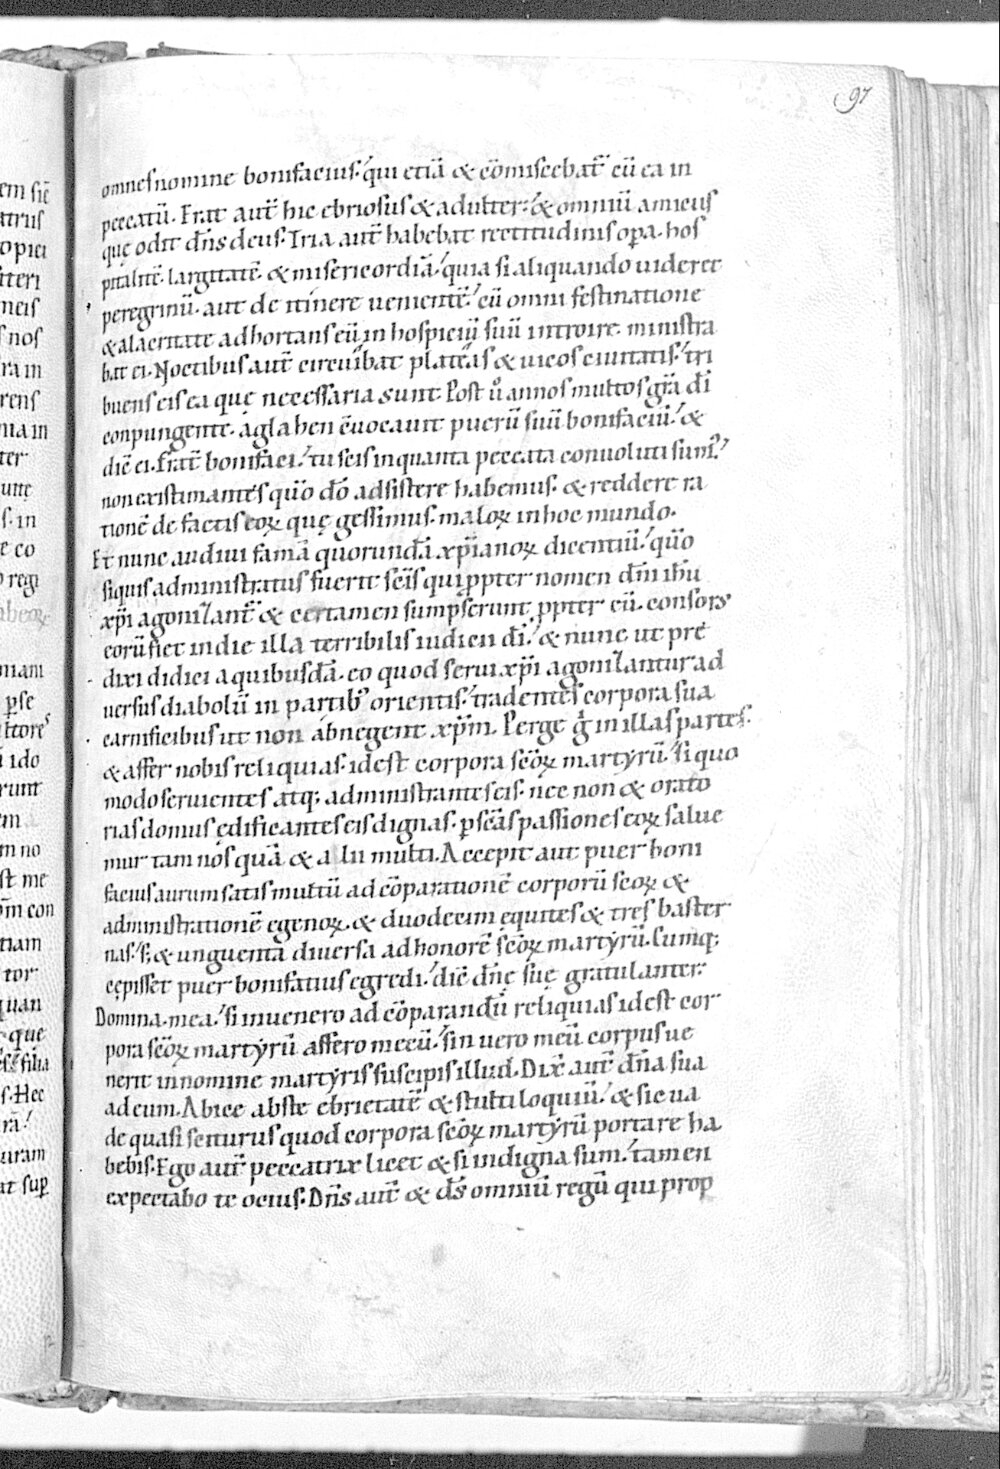 97
omnes nomine bonifacius. qui etiā & cōmiscebat᷑ cū ea in
peccatū. Erat aut̄ hic ebriosus & adulter. & omniū amicus
quę odit dn̄s deus. Tria aut̄ habebat rectitudinis opa. hos
pitalitē. largitatē. & misericordiā. quia si aliquando uideret
peregrinū. aut de itinere uenientē. eū omni festinatione
& alacritate adhortans eū in hospiciū suū introire. ministra
bat ei. Noctibus aut̄ circuibat plateas & uicos ciuitatis. tri
buens eis ea quę necessaria sunt. Post u̇ annos multos gr̄a dī
conpungente. aglahen ēuocauit puerū suū bonifaciū. &
diē ei. frat̄ bonifaci. tu scis in quanta peccata conuoluti sum᷒.
non existimantes quō dō adsistere habemus. & reddere ra
tionē de factis eoꝝ quę gessimus. maloꝝ in hoc mundo.
Et nunc audiui famā quorundā xp̄ianoꝝ dicentiū. quō
siquis administratus fuerit sc̄is qui ꝓpter nomen dn̄i ihū
xp̄i agonizant᷑ & certamen sumpserunt ꝓpter eū. consors
eorū fiet in die illa terribilis iudicii dī. & nunc ut pre
dixi didici a quibusdā. eo quod serui xp̄i agonizantur ad
uersus diabolū in partib᷒ orientis. tradentes corpora sua
carnificibus ut non abnegent xp̄m. Perge g̊ in illas partes.
& affer nobis reliquias. idest corpora sc̄oꝝ martyrū. si quo
modo seruientes atq; administrantes eis. nec non & orato
rias domus ędificantes eis dignas. p sc̄as passiones eoꝝ salue
mur tam nos quā & alii multi. Accepit aut puer boni
facius aurum satis multū ad cōparationē corporū sc̄oꝝ &
administrationē egenoꝝ. & duodecim equites & tres baster
nas. s; & unguenta diuersa ad honorē sc̄oꝝ martyrū. Cumq;
cępisset puer bonifatius egredi. diē dn̄ę suę gratulanter.
Domina mea. si inuenero ad cōparandū reliquias idest cor
pora sc̄oꝝ martyrū affero mecū. sin uero meū corpus ue
nerit in nomine martyris suscipis illud. Dix̄ aut̄ dn̄a sua
ad eum. Abice abste ebrietatē & stultiloquiū. & sic ua
de quasi sciturus quod corpora sc̄oꝝ martyrū portare ha
bebis. Ego aut̄ peccatrix licet & si indigna sum. tamen
expectabo te ocius. Dn̄s aut̄ & ds̄ omniū regū qui prop